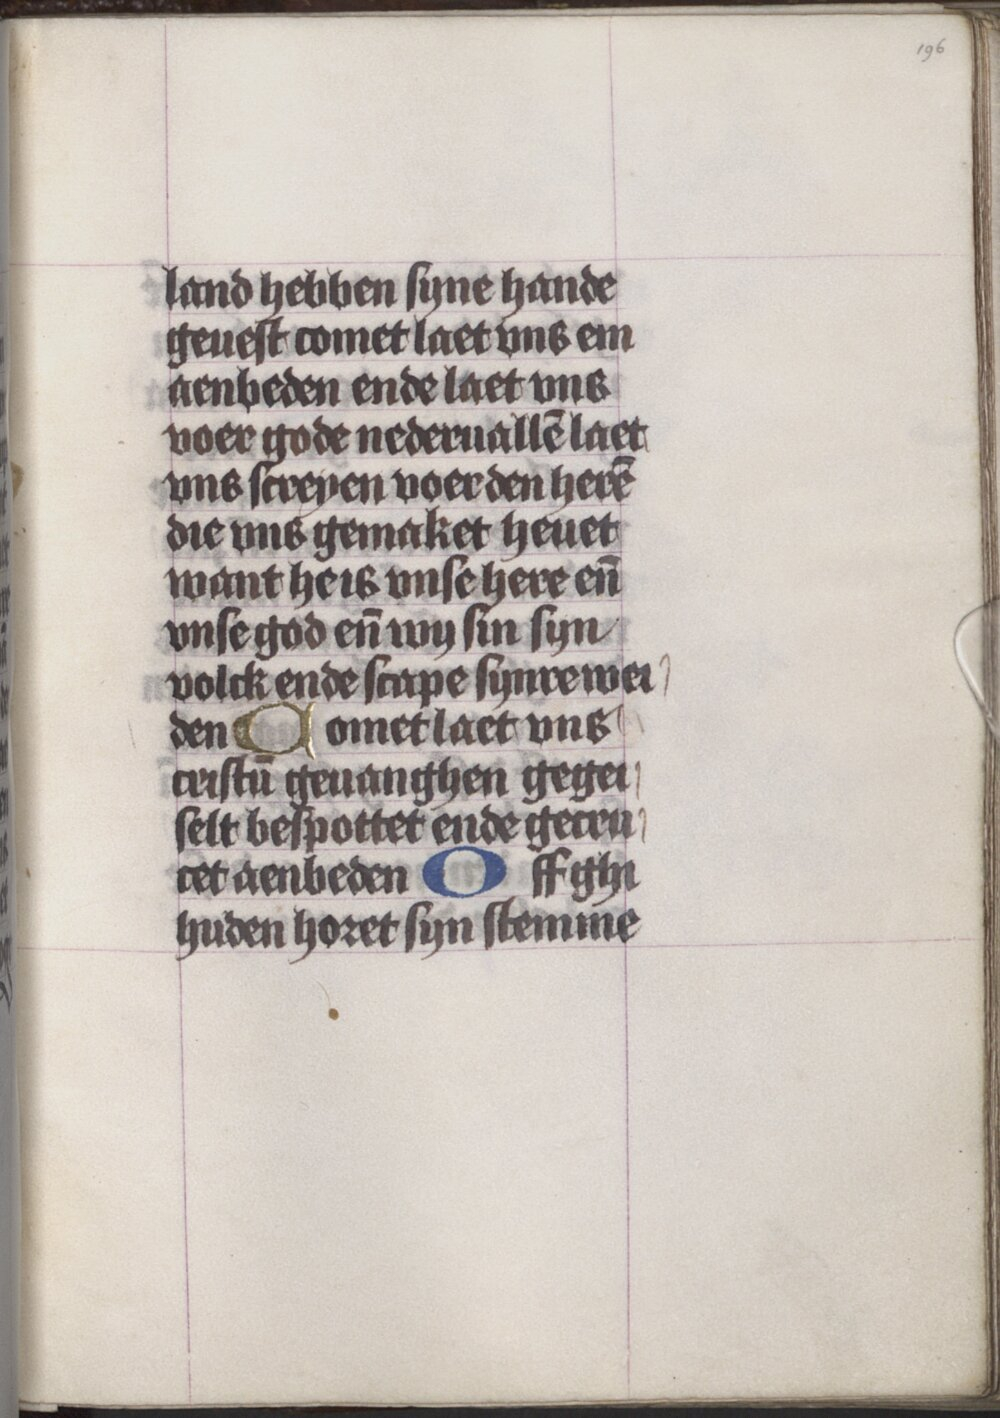 196
land hebben syne hande
geuest comet laet vns em
aenbeden ende laet vns
voer gode nederuallē laet
vns screyen voer den herē
die vns gemaket heuet
want he is vnse here en̄
vnse god en̄ wy sin syn
volck ende scape synre wei
den Comet laet vns
cristū geuanghen gegei
selt bespottet ende gecru
cet aenbeden Off ghi
huden horet syn stemme